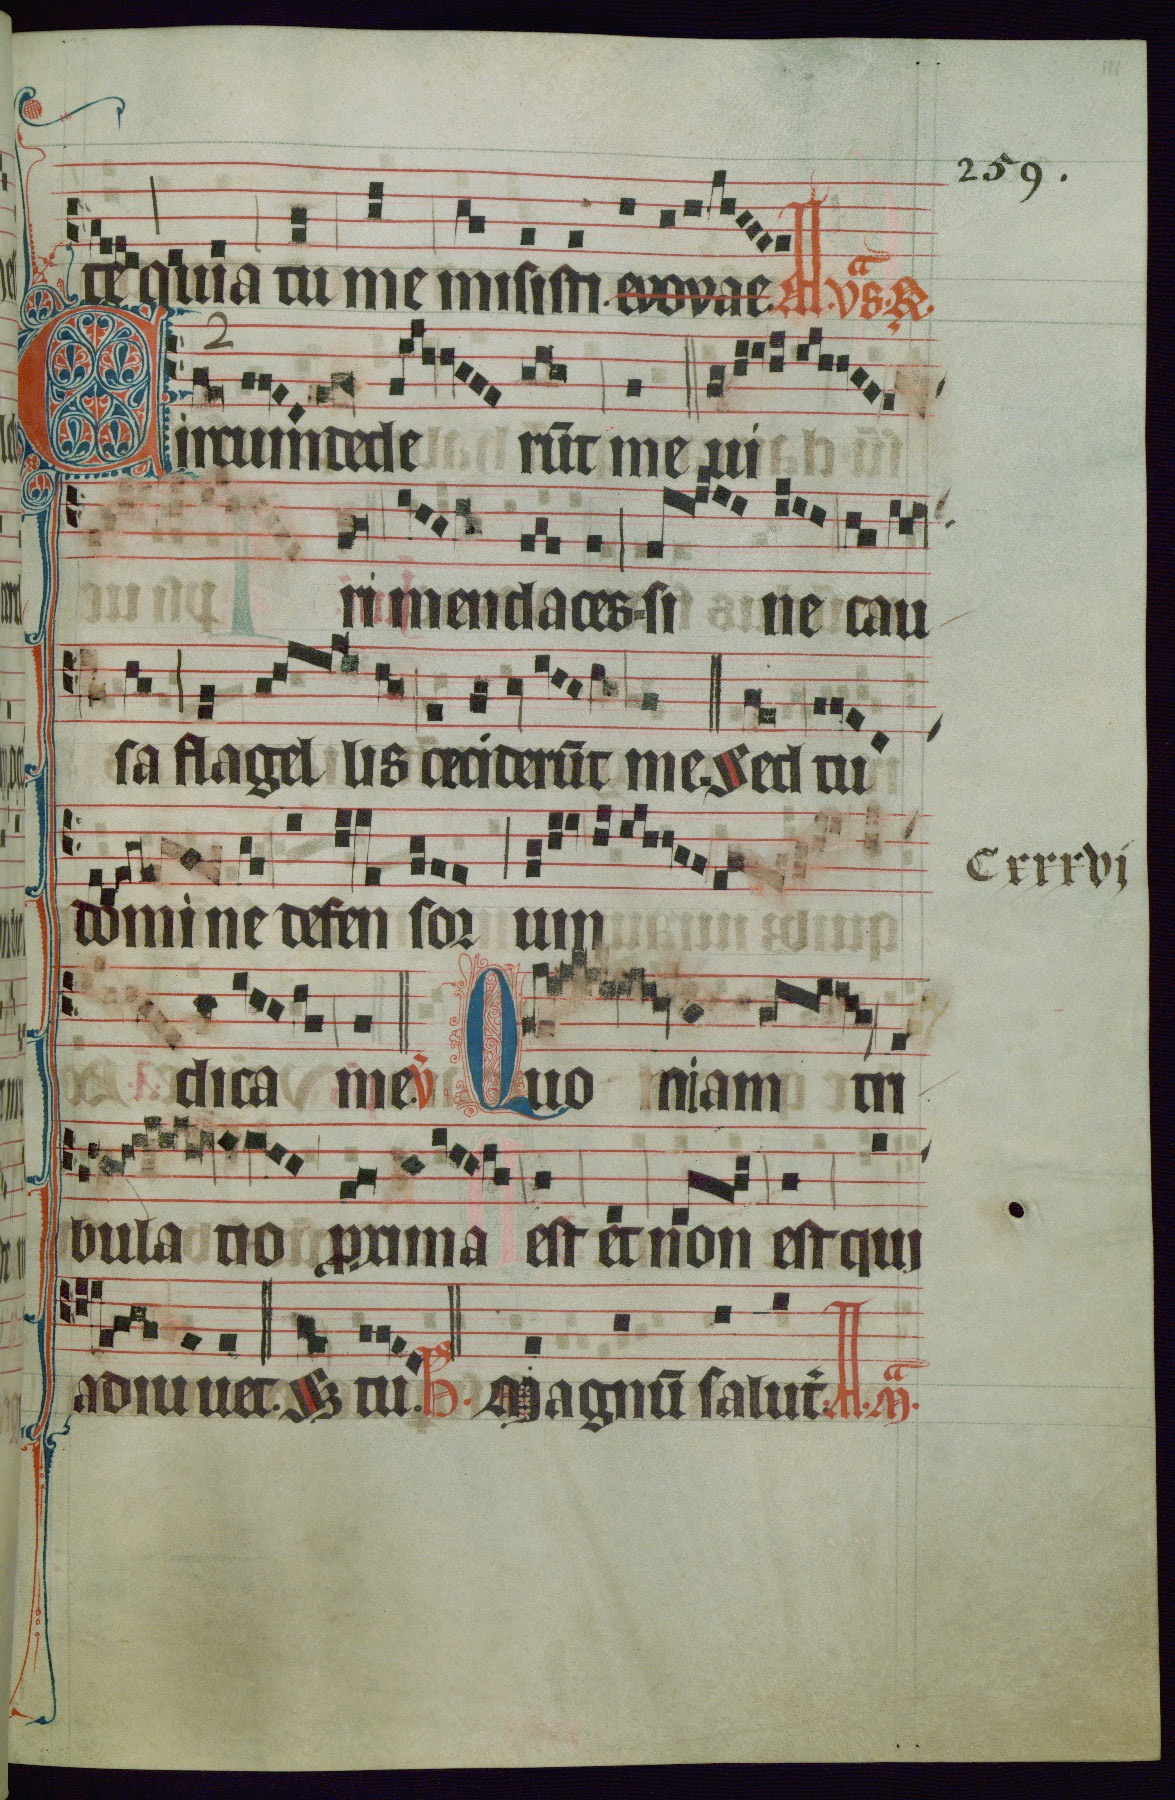 259.
te quia tu me misisti. evovae. A. a vs. R.
2
Circumdede rūt me ui
ri mendaces. si ne cau
sa flagel lis ceciderūt me. Sed tu
domi ne defen sor uin
Cxxxvj
dica me. v Quo niam tri
bula tio proxima est et non est qui
adiu uet. S tu. Magnū salut. A. a